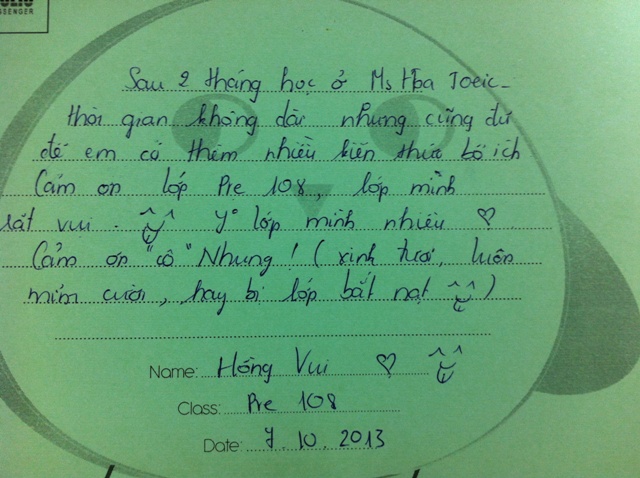 SSENGER
Sau 2 tháng học ở Ms Hoa Toeic-
thời gian không dài nhưng cũng đủ
để em có thêm nhiều kiến thức bổ ích
Cảm ơn lớp Pre 108, lớp mình
rất vui. Yº lớp mình nhiều ♡
Cảm ơn "cô" Nhung! (xinh tươi, luôn
mỉm cười, hay bị lớp bắt nạt)
Name: Hồng Vui ♡
Class: Pre 108
Date: 7.10.2013